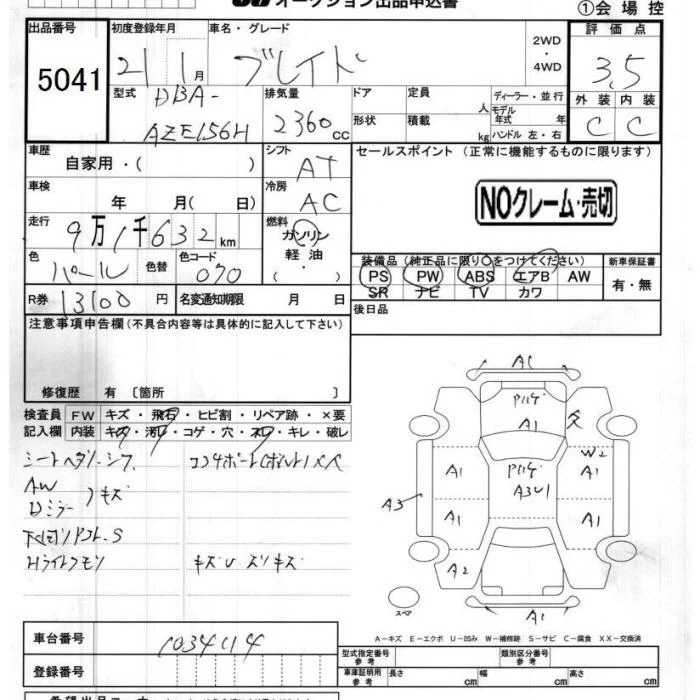 オークション出品申込書
①会場控
出品番号
5041
初度登録年月
21 1月
車名・グレード
ブレイド
2WD
・
4WD
評価点
3.5
外装 内装
C C
型式
DBA-
AZE156H
排気量
2360cc
ドア
形状
定員 人
積載 kg
ディーラー・並行
モデル年式 年
ハンドル 左・右
車歴
自家用・( )
シフト
AT
セールスポイント (正常に機能するものに限ります)
NOクレーム・売切
車検
年 月( 日)
冷房
AC
走行
9万1千632km
燃料
ガソリン
軽油
・( )
色
パール
色替
色コード
070
装備品(純正品に限り○をつけてください)
PS PW ABS エアB AW
SR ナビ TV カワ
新車保証書
有・無
R券 13100円
名変通知期限 月 日
後日品
注意事項申告欄(不具合内容等は具体的に記入して下さい)
修復歴 有〔箇所 〕
検査員
記入欄
FW キズ・飛石・ヒビ割・リペア跡・×要
内装 キズ・汚レ・コゲ・穴・スレ・キレ・破レ
AW
Dミラー
キズ
Hライトクモリ
キズU スリキズ
A1
A1
W2
A1
A1
A3U1
A3
A1
A1
A2
A1
スペア
A-キズ E-エクボ U-凹み W-補修跡 S-サビ C-腐食 XX-交換済
車台番号
1034114
登録番号
型式指定番号
参考
類別区分番号
参考
車庫証明用
参考
長さ cm
幅 cm
高さ cm